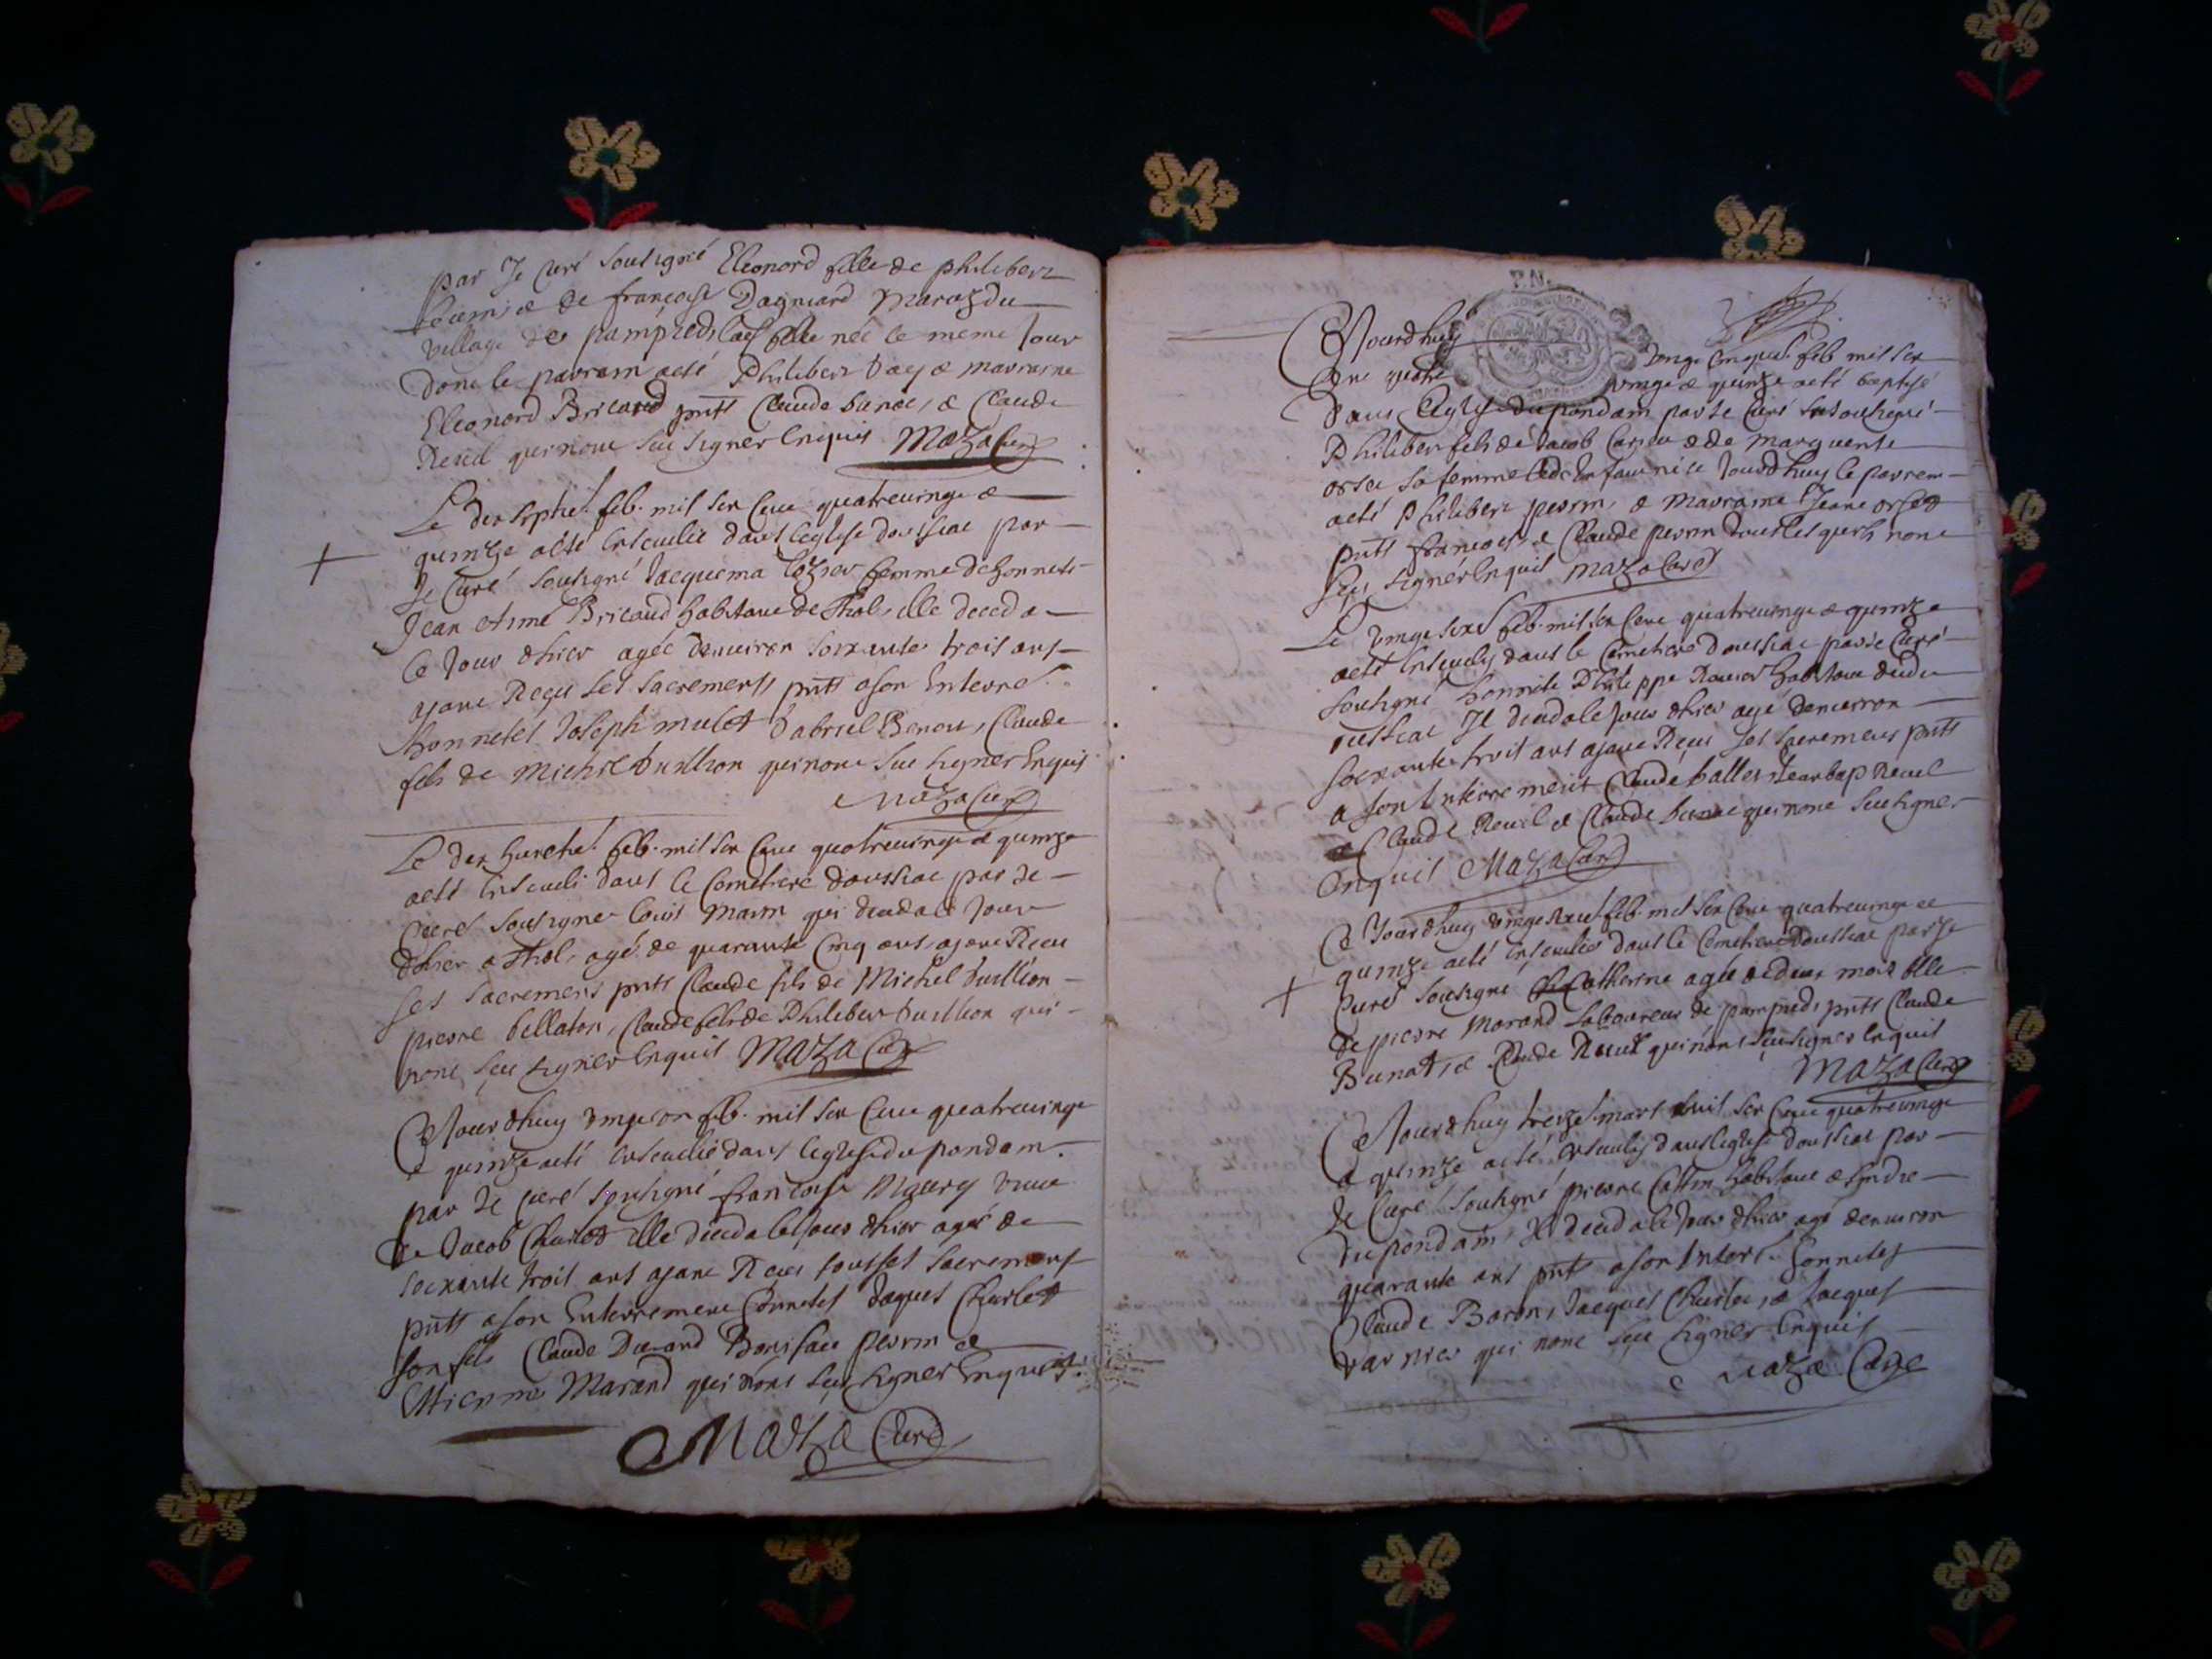 par Je Curé Soubsigné Eleonord fille de philibert
de françoise Dagniard Mariez du
village de pampied, née le meme Jour
Donc le parrain aesté Philibert marraine
Eleonord Bricaud pnts Claude bunoc, & Claude
Reuil qui nont Sceu Signer Enquis Maza Curé
Le dix septie. feb. mil Six Cent quatrevingt &
quinze aesté Enseuelie dans leglise doussiac par
Je Curé Soubsigné Jacquema femme de honneste
Jean Aimé Bricaud habitant de Thol, elle deceda
Ce Jour dhier agée denuiron Soixante trois ans
ayant Reçu Ses Sacrements pnts a son Enterre.
honnetes Joseph mulet Gabriel Benoit, Claude
fils de Michel Vuillion qui nont Sceu Signer Enquis
Maza Curé
Le dix huictie. feb. mil Six Cent quatreuingt & quinze
aesté Enseueli dans le Cemetiere doussiac par Je
Curé Soubsigné Louis Marin qui deceda le Jour
dhier a Thol, agé de quarante Cinq ans, ayant Receu
Ses Sacremens pnts Claude fils de Michel Vuillion
pierre bellaton, Claude fils de Philibert Vuillion qui
nont Sceu Signer Enquis Maza Curé
Ce Jourdhuy vingt feb. mil Six Cent quatreuingt
& quinze aesté Enseuelie dans leglise du pondain
par Je Curé Soubsigné françoise Maurey veuve
de Jacob Charlet elle deceda le Jour dhier agée de
Soixante trois ans ayant Receu tous Ses Sacremens
pnts a son Enterrement honnetes Jaques Charlet
Son fils Claude Durand Boniface perrin &
Ettienne Marand qui nont Sceu Signer Enquis.
Maza Curé
Ce Jourdhuy vingt Cinquie. feb. mil Six
Cent quatre vingt & quinze aesté baptisé
Dans leglise du pondain par Je Curé Soubsigné
Philibert fils de Jacob & de Marguerite
orset Sa femme Jourdhuy le parrein
aesté Philibert perrin, & Marraine Jeane orset
pnts françois, & Claude perrin nont
Sceu Signer Enquis Maza Curé
Le vingt Sixe. feb. mil Six Cent quatreuingt & quinze
aesté Enseuely dans le Cemetiere doussiac par Je Curé
Soubsigné honneste Philippe habitant dudit
oussiac Il deceda le Jour dhier agé denuiron
Soixante trois ans ayant Reçu Ses Sacremens pnts
a Son Enterrement Claude ballet, Jean bap Reuil
& Claude Reuil & Claude bunoe qui nont Sceu Signer
Enquis Maza Curé
Ce Jourdhuy vingt Sixe. feb. mil Six Cent quatreuingt &
quinze aesté Enseuelie dans le Cemetiere doussiac par Je
Curé Soubsigné Catherine agée de deux mois fille
de pierre Morand Laboureur de pampied, pnts Claude
Bunot, & Claude Reuil qui nont Sceu Signer Enquis
Maza Curé
Ce Jourdhuy treize. mars mil Six Cent quatreuingt
& quinze aesté Enseuely dans leglise doussiac par
Je Curé Soubsigné pierre Cattin habitant
du pondain, Il deceda le Jour dhier agé denuiron
quarante ans pnts a son Enterr. honnetes
Claude Baron, Jacques Charlet, & Jacques
varnier qui nont Sceu Signer Enquis
Maza Curé